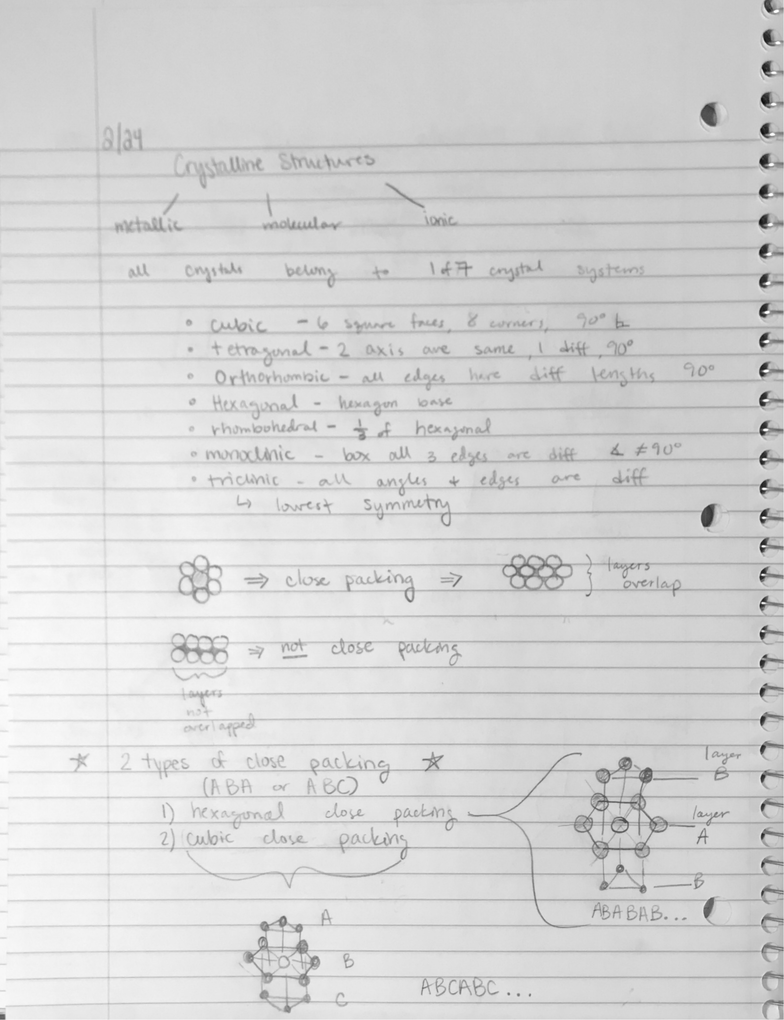 2/24
Crystalline Structures
metallic molecular ionic
all crystals belong to 1 of 7 crystal systems
• cubic - 6 square faces, 8 corners, 90°
• tetragonal - 2 axis are same, 1 diff, 90°
• Orthorhombic - all edges have diff lengths 90°
• Hexagonal - hexagon base
• rhombohedral - 1/3 of hexagonal
• monoclinic - box all 3 edges are diff ∡ ≠ 90°
• triclinic - all angles + edges are diff
↳ lowest symmetry
⇒ close packing ⇒ } layers
overlap
⇒ not close packing
layers
not
overlapped
☆ 2 types of close packing ☆
(ABA or ABC)
1) hexagonal close packing
2) cubic close packing
layer
B
layer
A
B
ABABAB...
A
B
C
ABCABC...